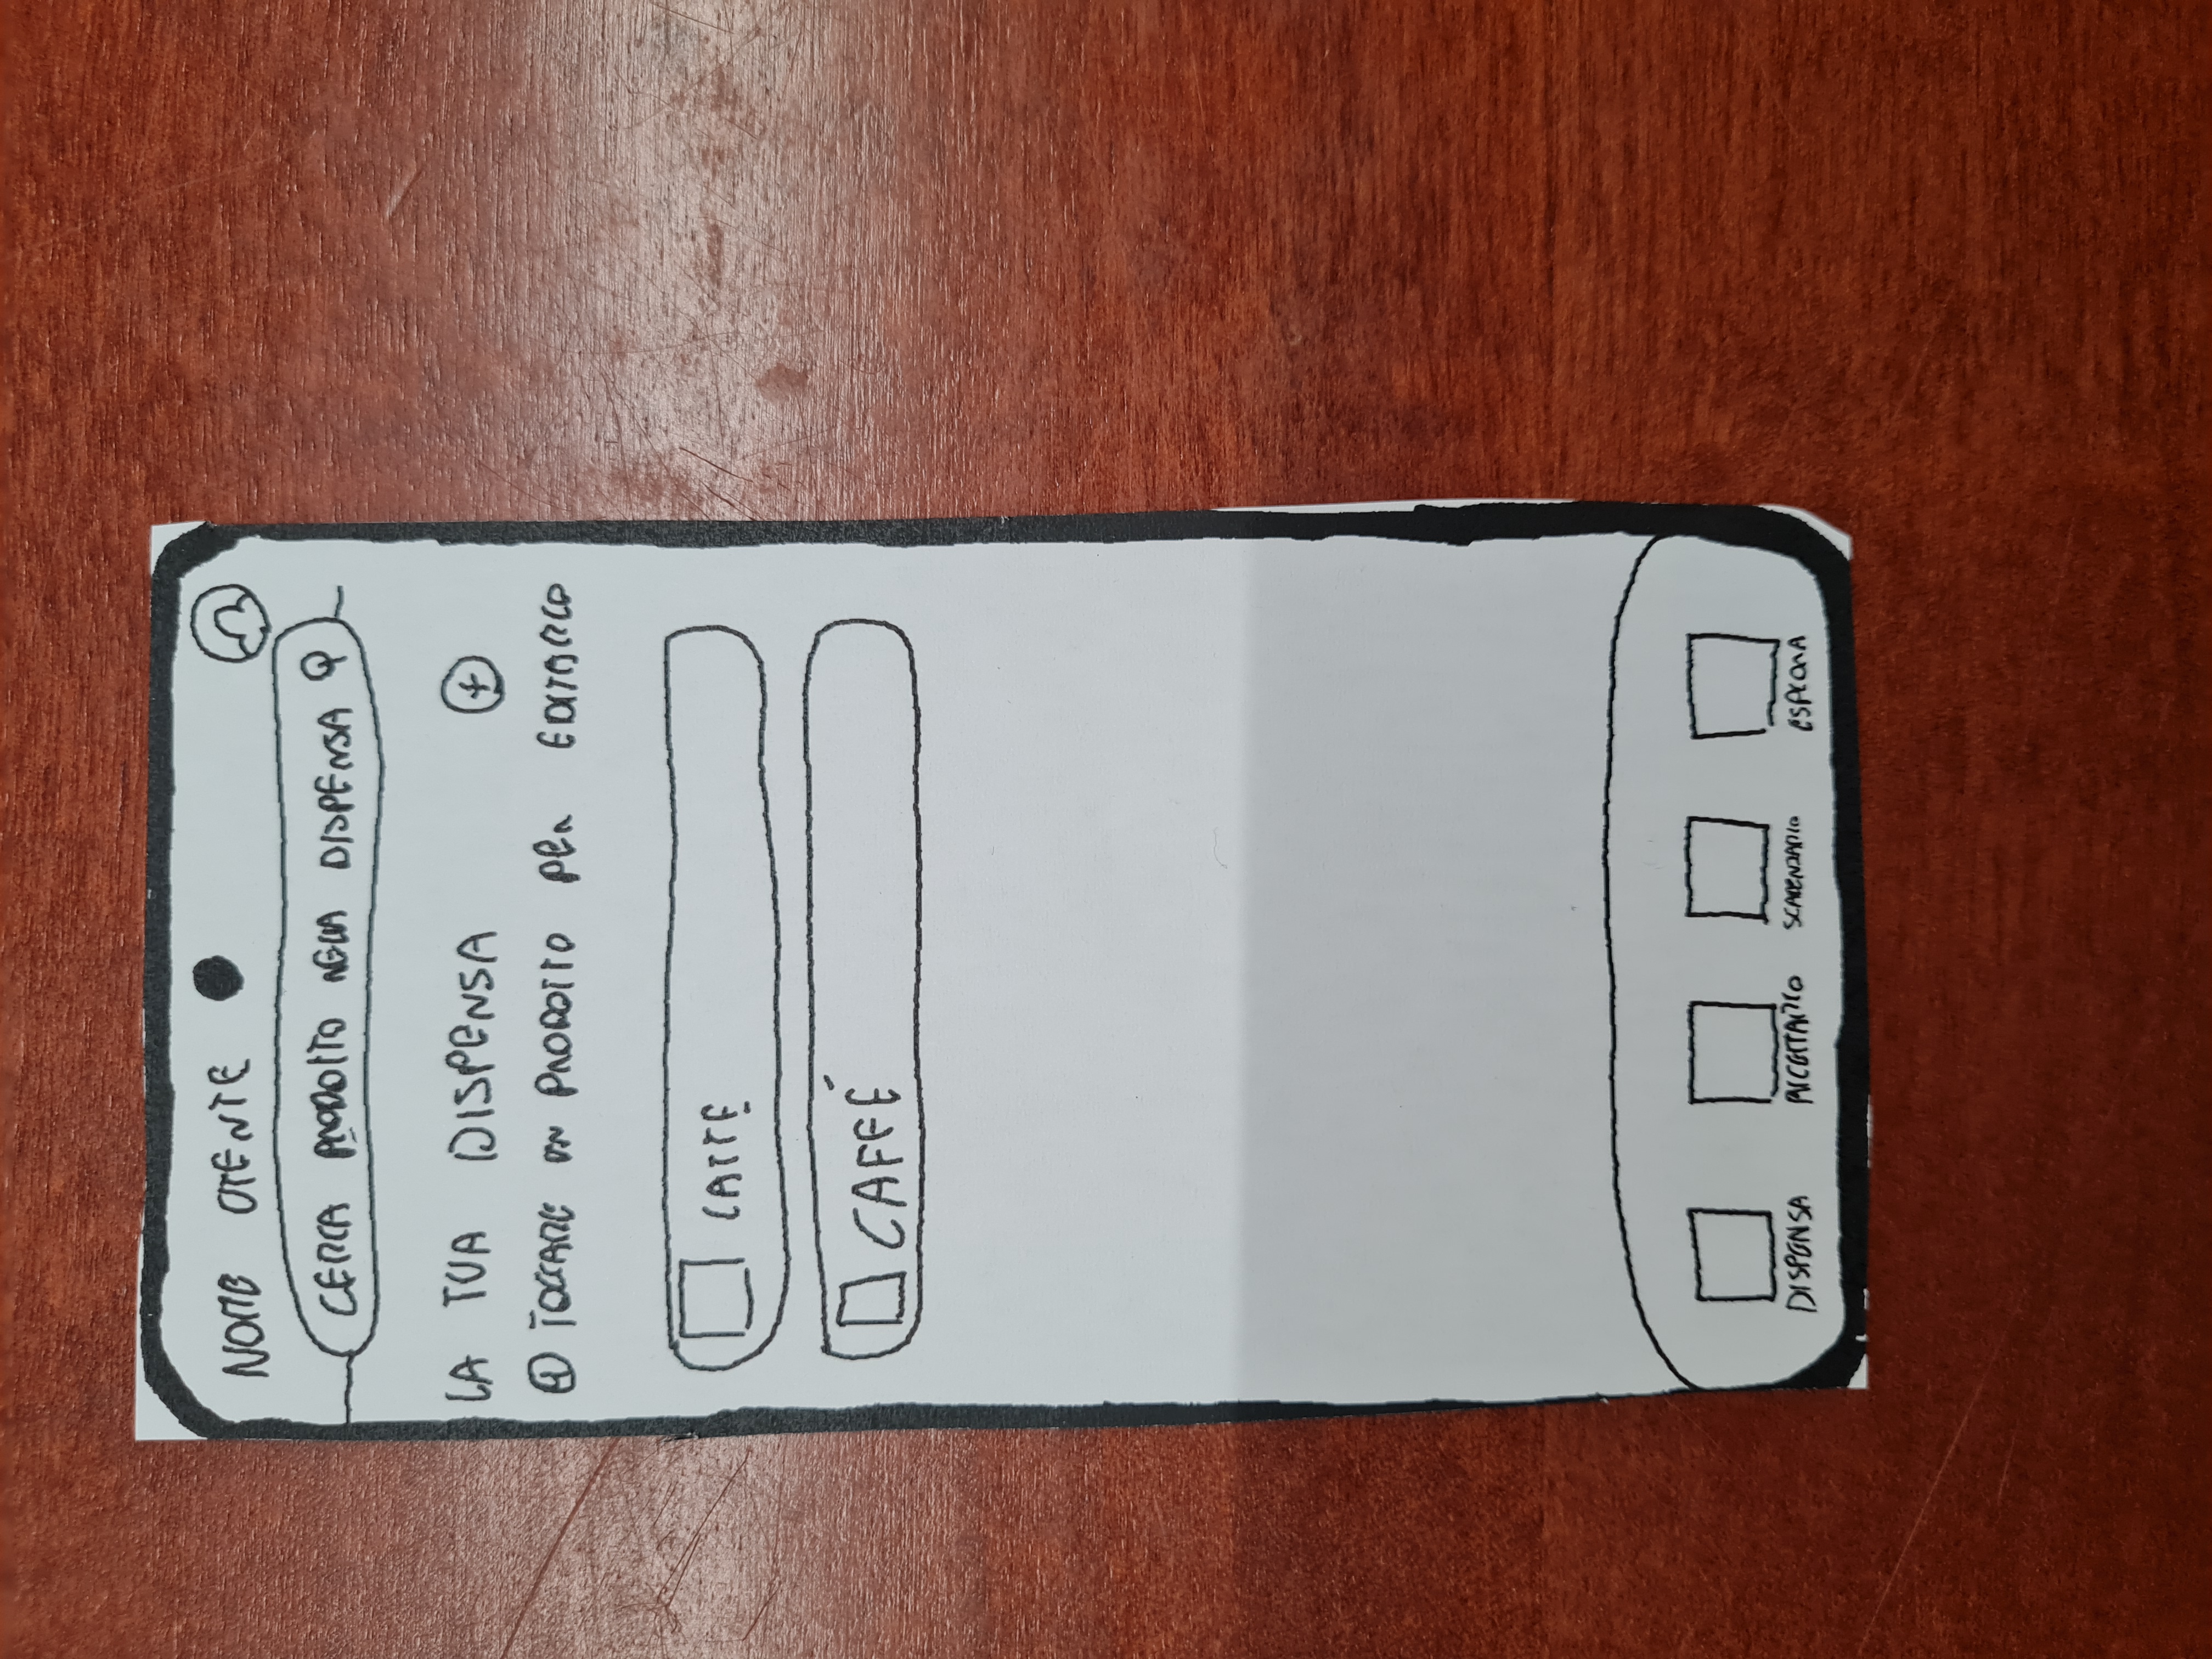 NOME UTENTE
CERCA PRODOTTO NELLA DISPENSA
LA TUA DISPENSA +
i TOCCARE UN PRODOTTO PER EDITARLO
LATTE
CAFFÉ
DISPENSA RICETTARIO SCADENZARIO ESPLORA